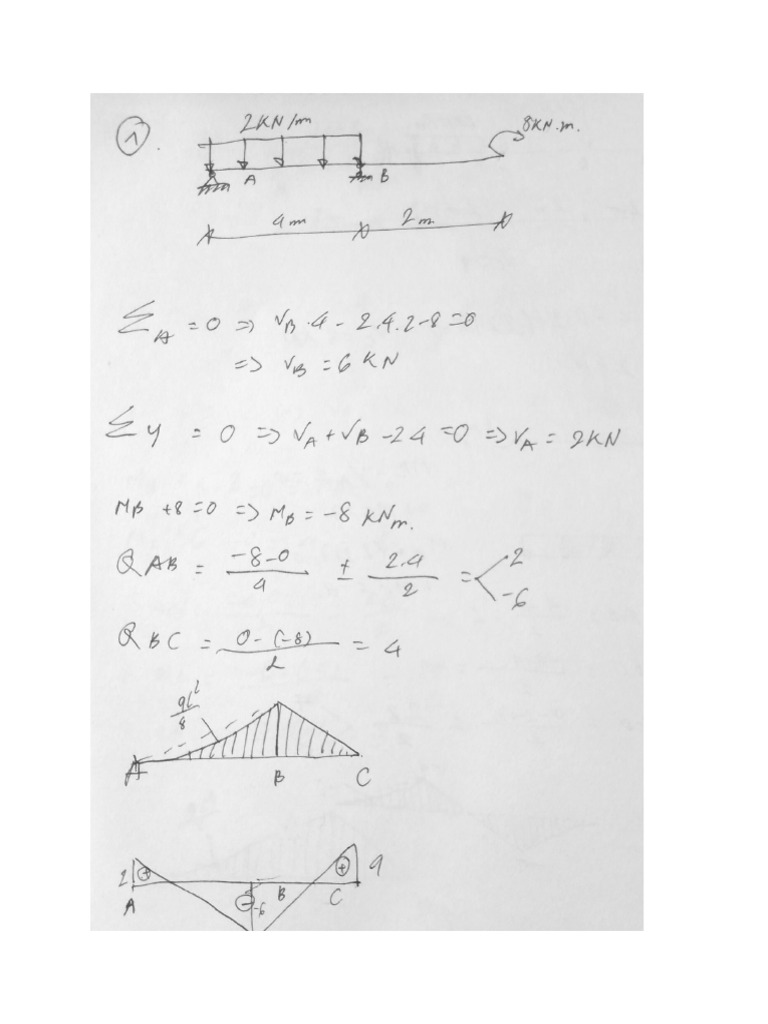 1.
2KN/m
8KN.m.
A
B
4m
2m
Σ A = 0 => VB.4 - 2.4.2-8=0
=> VB = 6 KN
Σ y = 0 => VA + VB - 2 4 = 0 => VA = 2KN
MB + 8 = 0 => MB = -8 KNm.
QAB = (-8-0)/4 ± (2.4)/2 = < 2
-6
QBC = (0-(-8))/2 = 4
ql²/8
A B C
2 + - -6 B + 4
A C